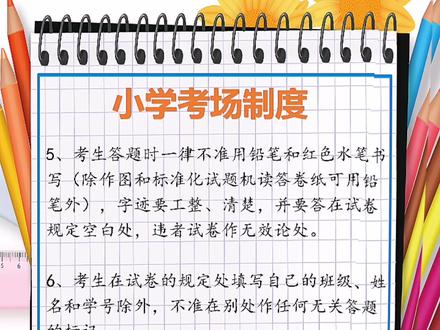 小学考场制度
5、考生答题时一律不准用铅笔和红色水笔书
写（除作图和标准化试题机读答卷纸可用铅
笔外），字迹要工整、清楚，并要答在试卷
规定空白处，违者试卷作无效论处。
6、考生在试卷的规定处填写自己的班级、姓
名和学号除外，不准在别处作任何无关答题
的标记
5 6